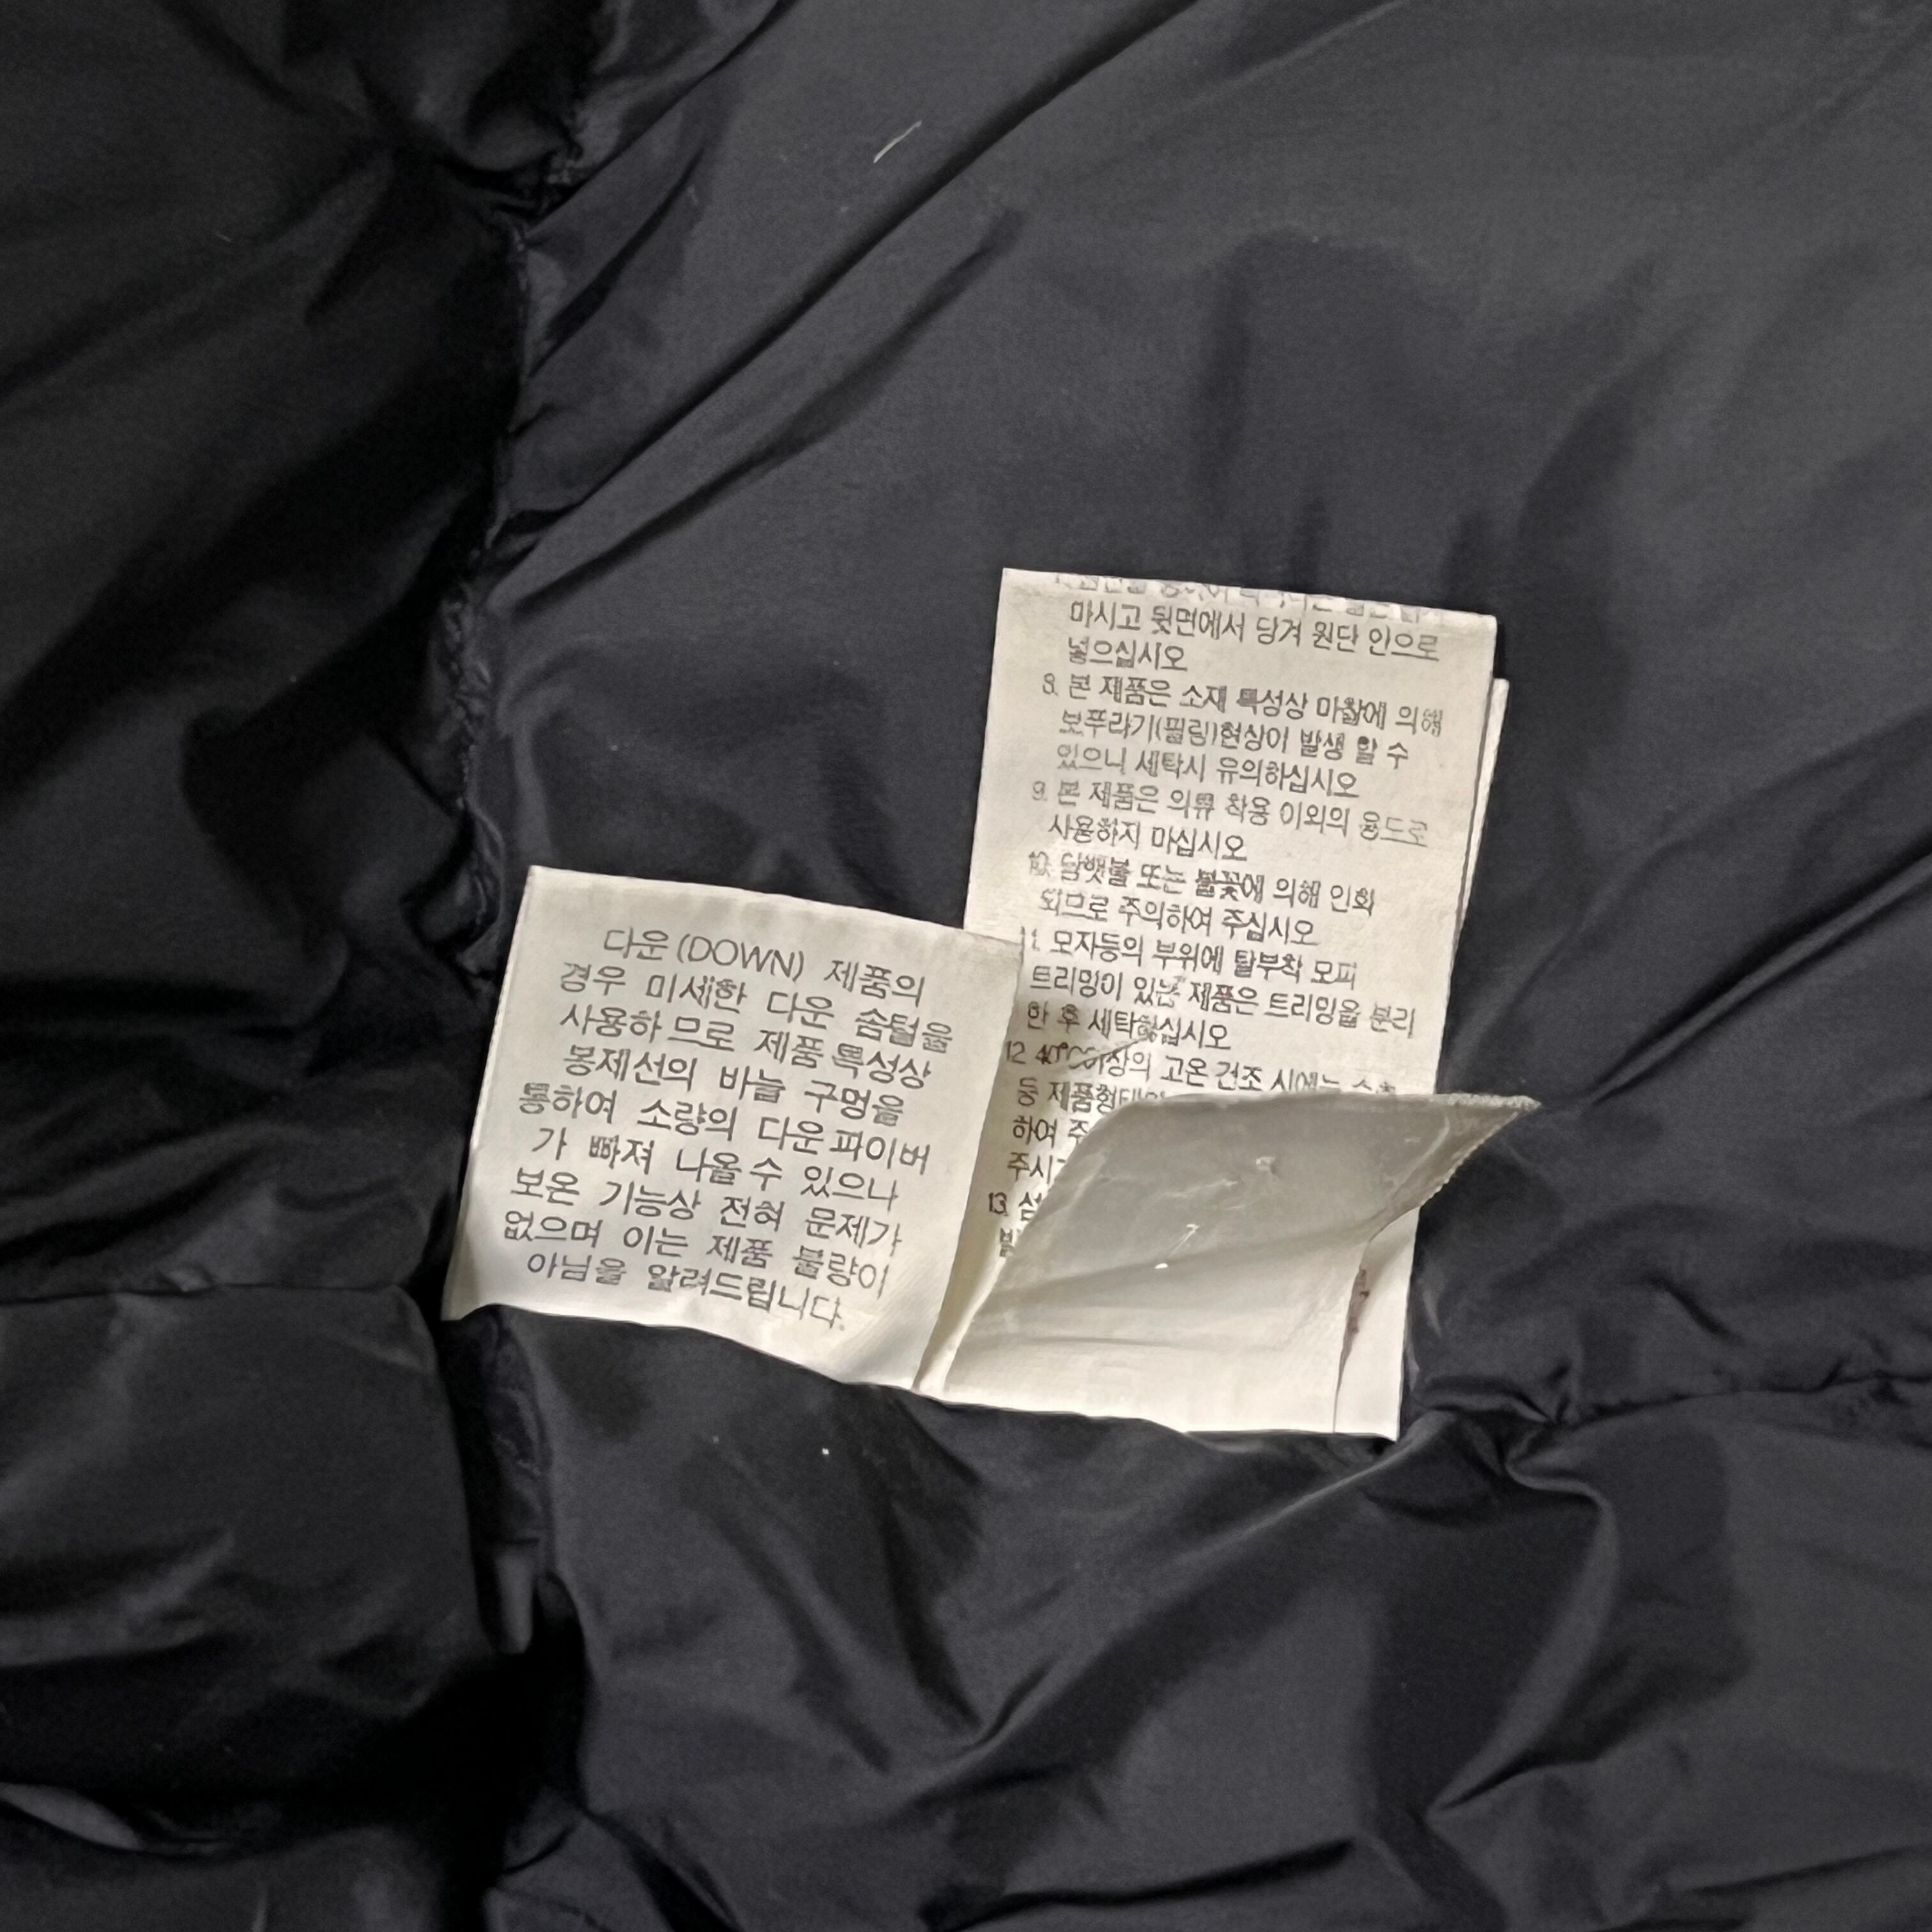 다운(DOWN) 제품의
경우 미세한 다운 솜털을
사용하므로 제품 특성상
봉제선의 바늘 구멍을
통하여 소량의 다운파이버
가 빠져 나올 수 있으나
보온 기능상 전혀 문제가
없으며 이는 제품 불량이
아님을 알려드립니다.
마시고 뒷면에서 당겨 원단 안으로
넣으십시오
8. 본 제품은 소재 특성상 마찰에 의해
보푸라기(필링)현상이 발생 할 수
있으니 세탁시 유의하십시오
9. 본 제품은 의류 착용 이외의 용도로
사용하지 마십시오
10. 담뱃불 또는 불꽃에 의해 인화
되므로 주의하여 주십시오
11. 모자등의 부위에 탈부착 모피
트리밍이 있는 제품은 트리밍을 분리
한 후 세탁하십시오
12. 40°C이상의 고온 건조 시에는
등
하여
13.